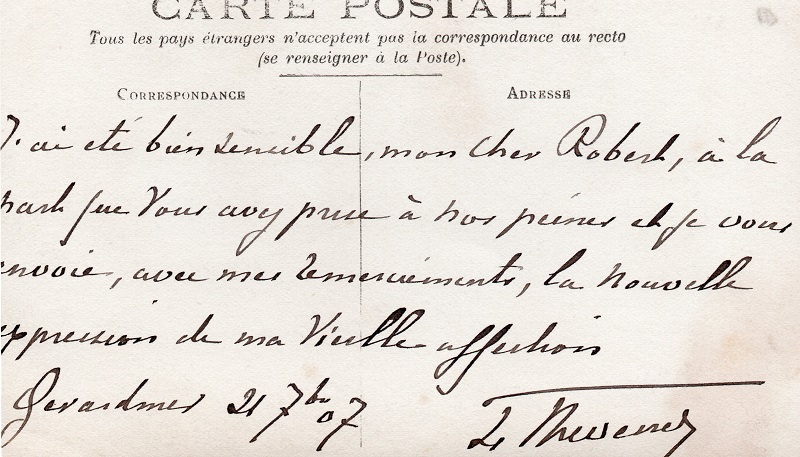 CARTE POSTALE
Tous les pays étrangers n'acceptent pas la correspondance au recto
(se renseigner à la Poste).
CORRESPONDANCE
ADRESSE
J'ai été bien sensible, mon cher Robert, à la
part que vous avez prise à nos peines et je vous
envoie, avec mes remerciements, la nouvelle
expression de ma vieille affection
Gerardmer 21 7bre 07